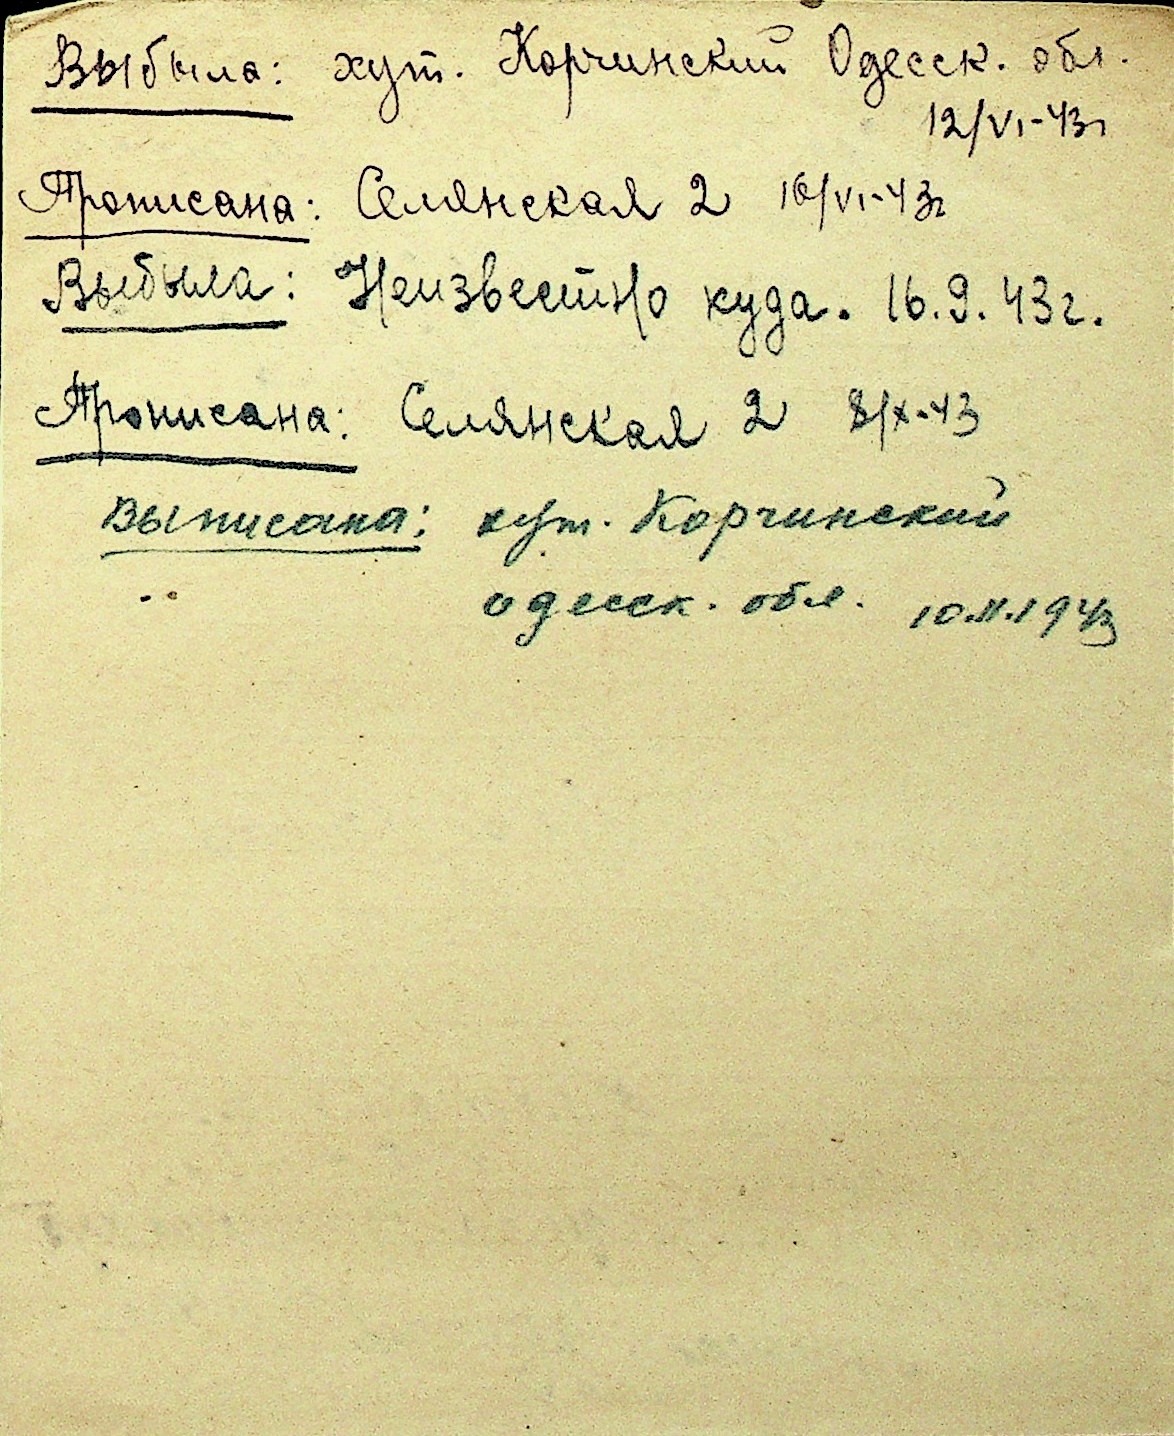 Выбыла: хут. Корчинский Одесск. обл.
12/VI-43г
Прописана: Селянская 2 16/VI-43г
Выбыла: Неизвестно куда. 16.9.43г.
Прописана: Селянская 2 8/X-43
Выписана: хут. Корчинский
одесск. обл. 10.11.1943